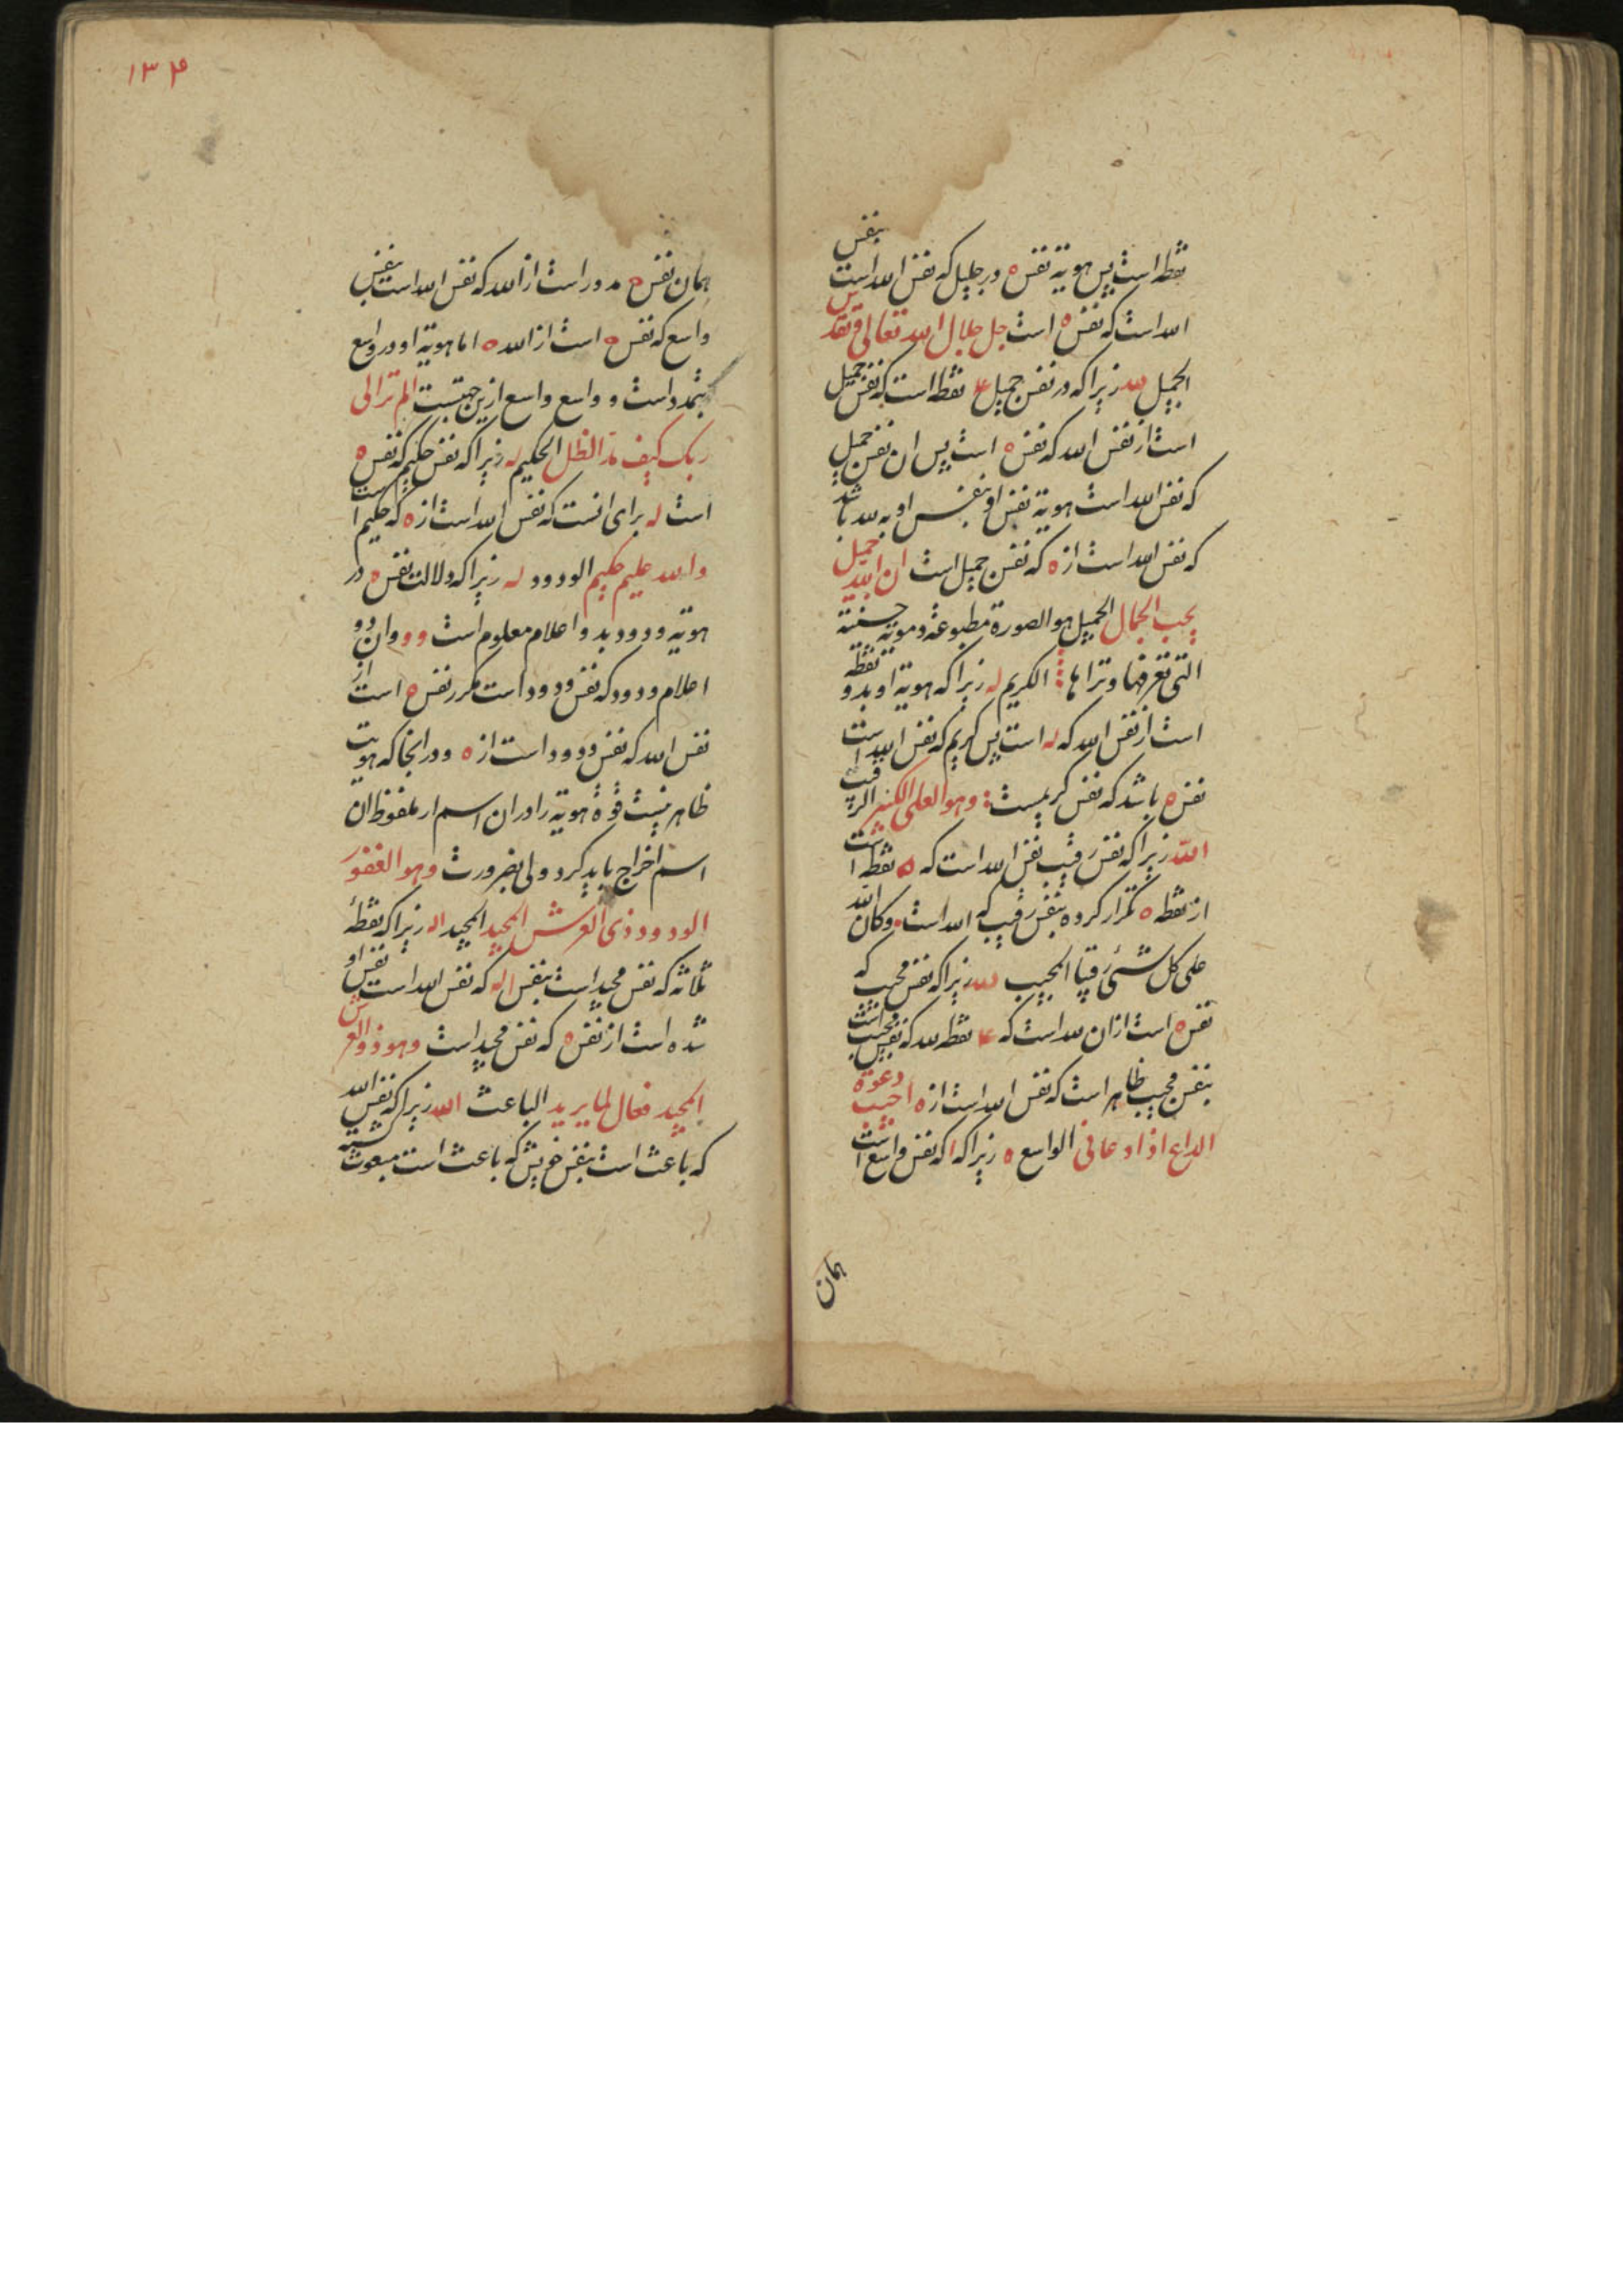 نقطه است پس هویة نفس ه در جلیل که نفس الله است بنفس
الله است که نفس ه است جل جلال الله تعالی و تقدس
الجمیل لله زیرا که در نفس جمیل ۴ نقطه است که نفس جمیل
است از نفس الله که نفس ه است پس ان نفس جمیل
که نفس الله است هویة نفس او بنفس او به لله باشد
که نفس الله است از ه که نفس جمیل است ان الله جمیل
یحب الجمال الجمیل هو الصورة مطبوعة و مویة حسنیة
التی تعرفها و تراها الکریم له زیرا که هویة او بدو نقطه
است از نفس الله که له است پس کریم که نفس الله است
نفس ه باشد که نفس کریمست وهو العلی الکبیر الرقیب
الله زیرا که نفس رقیب نفس الله است که ۵ نقطه است
از نقطه ه تکرار کرده بنفس رقیب که الله است وکان الله
علی کل شئ رقیبا المجیب لله زیرا که نفس مجیب که
نفس ه است از ان لله است که ۴ نقطه لله که نفس مجیب است
بنفس مجیب ظاهر است که نفس الله است از ه اجیب دعوة
الداع اذا دعانی الواسع ه زیرا که ا که نفس واسع است
همان
۱۳۴
همان نفس ه مدور است از الله که نفس الله است بنفس
واسع که نفس ه است از الله ه اما هویة او در واسع
بثمد است و واسع واسع ازین جهتست الم تر الی
ربک کیف مد الظل الحکیم له زیرا که نفس حکیم که نفس ه
است له برای انست که نفس الله است از ه که حکیم است
والله علیم حکیم الودود له زیرا که دلالت نفس ه در
هویة ودود بد و اعلام معلوم است و و وان دو
اعلام ودود که نفس ودود است مکرر نفس ه است از
نفس الله که نفس ودود است از ه و در انجا که هویت
ظاهر نیست قوة هویة را در ان اسم از ملفوظ ان
اسم اخراج باید کرد ولی بضرورت وهو الغفور
الودود ذی العرش المجید المجید اله زیرا که نقطهٔ
ثلاثه که نفس مجید است بنفس اله که نفس الله است نفس او
شده است از نفس ه که نفس مجید است وهو ذو العرش
المجید فعال لما یرید الباعث الله زیرا که نفس الله
که باعث است بنفس خویش که باعث است مبعوث گشته